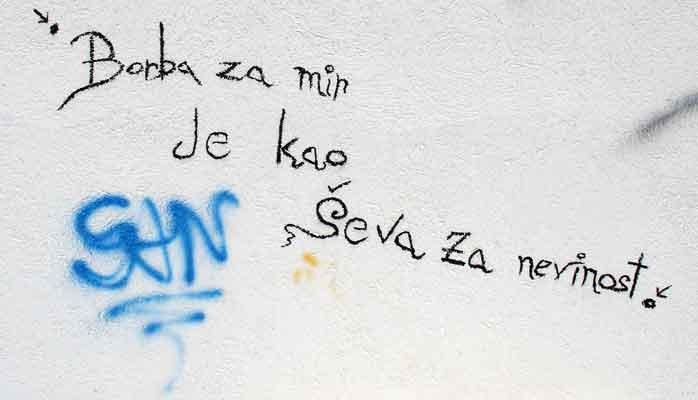 Borba za mir
Je kao
Ševa za nevinost.
SAN